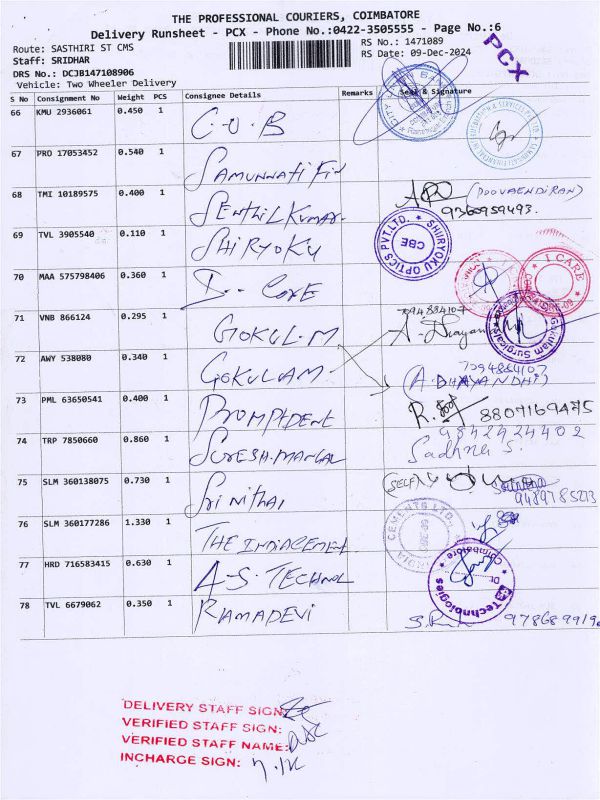 THE PROFESSIONAL COURIERS, COIMBATORE
Delivery Runsheet - PCX - Phone No.:0422-3505555 - Page No.:6
Route: SASTHIRI ST CMS
RS No.: 1471089
Staff: SRIDHAR
RS Date: 09-Dec-2024
PCX
DRS No.: DCJB147108906
Vehicle: Two Wheeler Delivery
S No Consignment No Weight PCS Consignee Details Remarks Seal & Signature
66 KMU 2936061 0.450 1 C.U.B
67 PRO 17053452 0.540 1 SAMUNNATI FIN
68 TMI 10189575 0.400 1 SENTHIL KUMAR.
9360959493.
69 TVL 3905540 0.110 1 SHIRYOKU
SHIRYOKU OPTICS PVT.LTD. CBE
70 MAA 575798406 0.360 1
I CARE
71 VNB 866124 0.295 1 GOKUL.M
7094884107
Gokulam Surgicals
72 AWY 538080 0.340 1 GOKULAM
7094884107
73 PML 63650541 0.400 1 PROMPTDENT
8807169475
74 TRP 7850660 0.860 1 SURESH.MANGAL
9842424402
Sadhna S.
75 SLM 360138075 0.730 1 Sri Nithai
(SELF)
9489785273
76 SLM 360177286 1.330 1 THE INDIACEMENT
CEMENTS LTD.
77 HRD 716583415 0.630 1 A.S. TECHNOL
Technologies
Coimbatore
78 TVL 6679062 0.350 1 RAMADEVI
DELIVERY STAFF SIGN:
VERIFIED STAFF SIGN:
VERIFIED STAFF NAME:
INCHARGE SIGN: